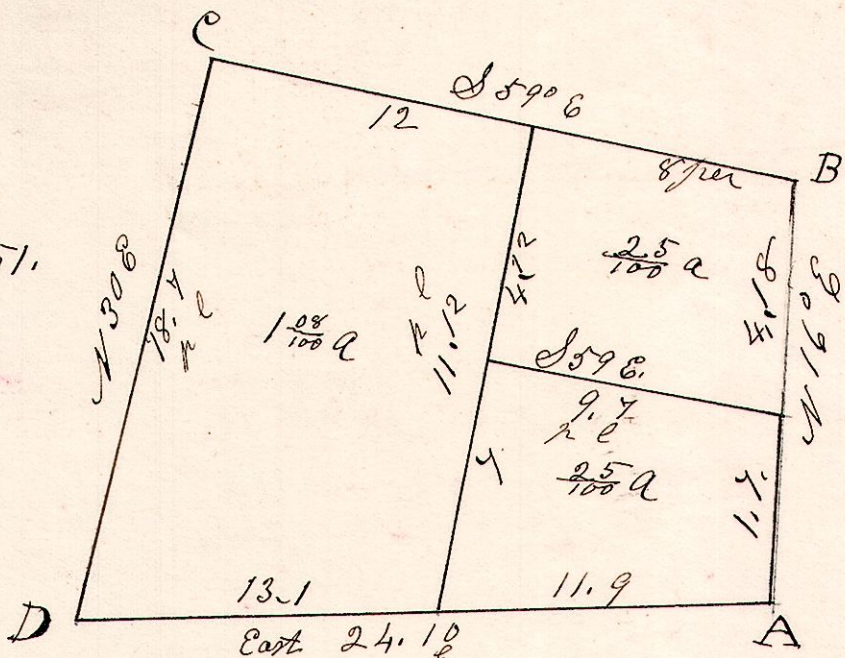 C
S 59° E
12
8 per
B
51.
N 30 E
18.7
p l
1 08/100 a
p l
11.12
4.12
25/100 a
4.18
N 16° E
S 59 E.
9.7
p l
7
25/100 a
1.7.
13.1
11.9
D
East 24.10
l
A